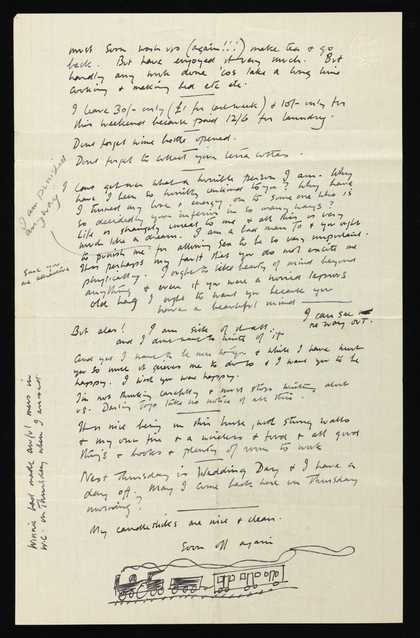 must soon wash up (again!!!) make tea & go
back. But have enjoyed it very much. But
hardly any work done 'cos take a long time
cooking & making bed etc etc.
I leave 30/- only (£1 for last week) & 10/- only for
this weekend because paid 12/6 for laundry.
Dont forget wine bottle opened.
Dont forget to collect your terra cottas.
I cant get over what a horrible person I am. Why
have I been so horribly unkind to you? Why have
I turned my love & energy on to some one who is
so decidedly your inferior in so many ways?
Life is strangely unreal to me & all this is very
much like a dream. I am a bad man To & you ought
to punish me for allowing sex to be so very important.
Its perhaps my fault that you do not excite me
physically. I ought to like beauty of mind beyond
anything & even if you were a horrid leprous
old hag I ought to want you because you
have a beautiful mind
I can see
no way out.
But alas! I am sick of
and I
And yet I have to be near to you & while I have hurt
you so much it grieves me to do so & I want you to be
happy. I wish you was happy.
I'm not thinking carefully & must stop writing about
us. Darling Togo take no notice of all this.
Its nice being in this house, with strong walls
& my own fire & a wireless & food & all good
things & books & plenty of room to work
Next Thursday is Wedding Day & I have a
day off. May I come back here on Thursday
morning?
My candlesticks are nice & clean.
Soon off again
I am punished
anyway
Save you
are
Winnie had made awful mess in
W.C. on Thursday when I arrived